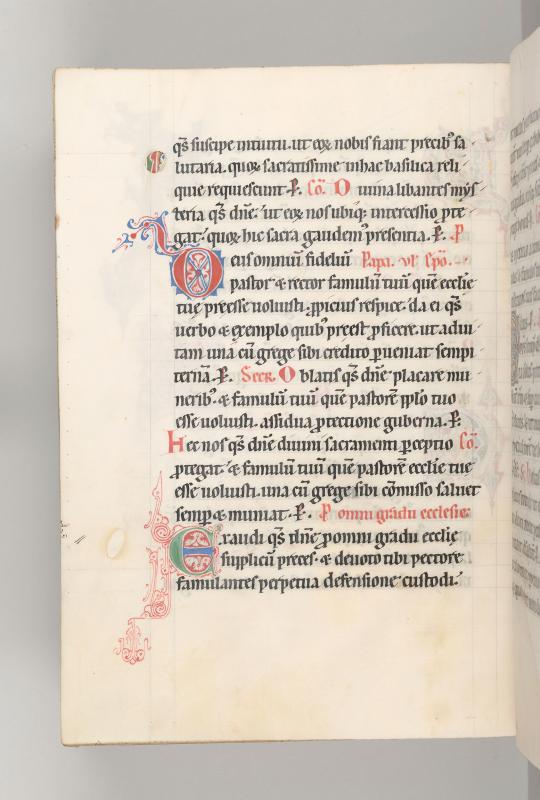 qs̄ suscipe intuitu. ut eoꝝ nobis fiant precibꝰ sa
lutaria. quoꝝ sacratissime in hac basilica reli
quie requiescunt. P̲. Cō. Diuina libantes mys
teria qs̄ dn̄e. ut eoꝝ nos ubiqꝫ intercessio ꝓte
gat. quoꝝ hic sacra gaudemꝰ presentia. P̲. P
Deus omniū fideliū Papa. ul̛ Ep̄o.
pastor & rector famulū tuū quē ecclie
tue preesse uoluisti. ꝓpicius respice. da ei qs̄
uerbo & exemplo quibꝰ preest ꝓficere. ut ad ui
tam una cū grege sibi credito ꝑueniat sempi
ternā. P̲. Secr. Oblatis qs̄ dn̄e placare mu
neribꝰ. & famulū tuū quē pastorē pplo tuo
esse uoluisti. assidua ꝓtectione guberna. P̲.
Hec nos qs̄ dn̄e diuini sacramenti ꝑceptio Cō.
ꝓtegat. & famulū tuū quē pastorē ecclie tue
esse uoluisti. una cū grege sibi cōmisso saluet
semꝑ & muniat. P̲. P omni gradu ecclesie.
Exaudi qs̄ dn̄e ꝓ omni gradu ecclie
supplicū preces. & deuoto tibi pectore
famulantes perpetua defensione custodi.